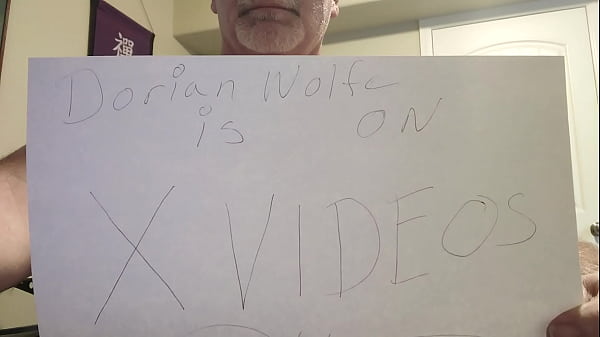 禪
Dorian Wolfe
is ON
X VIDEOS